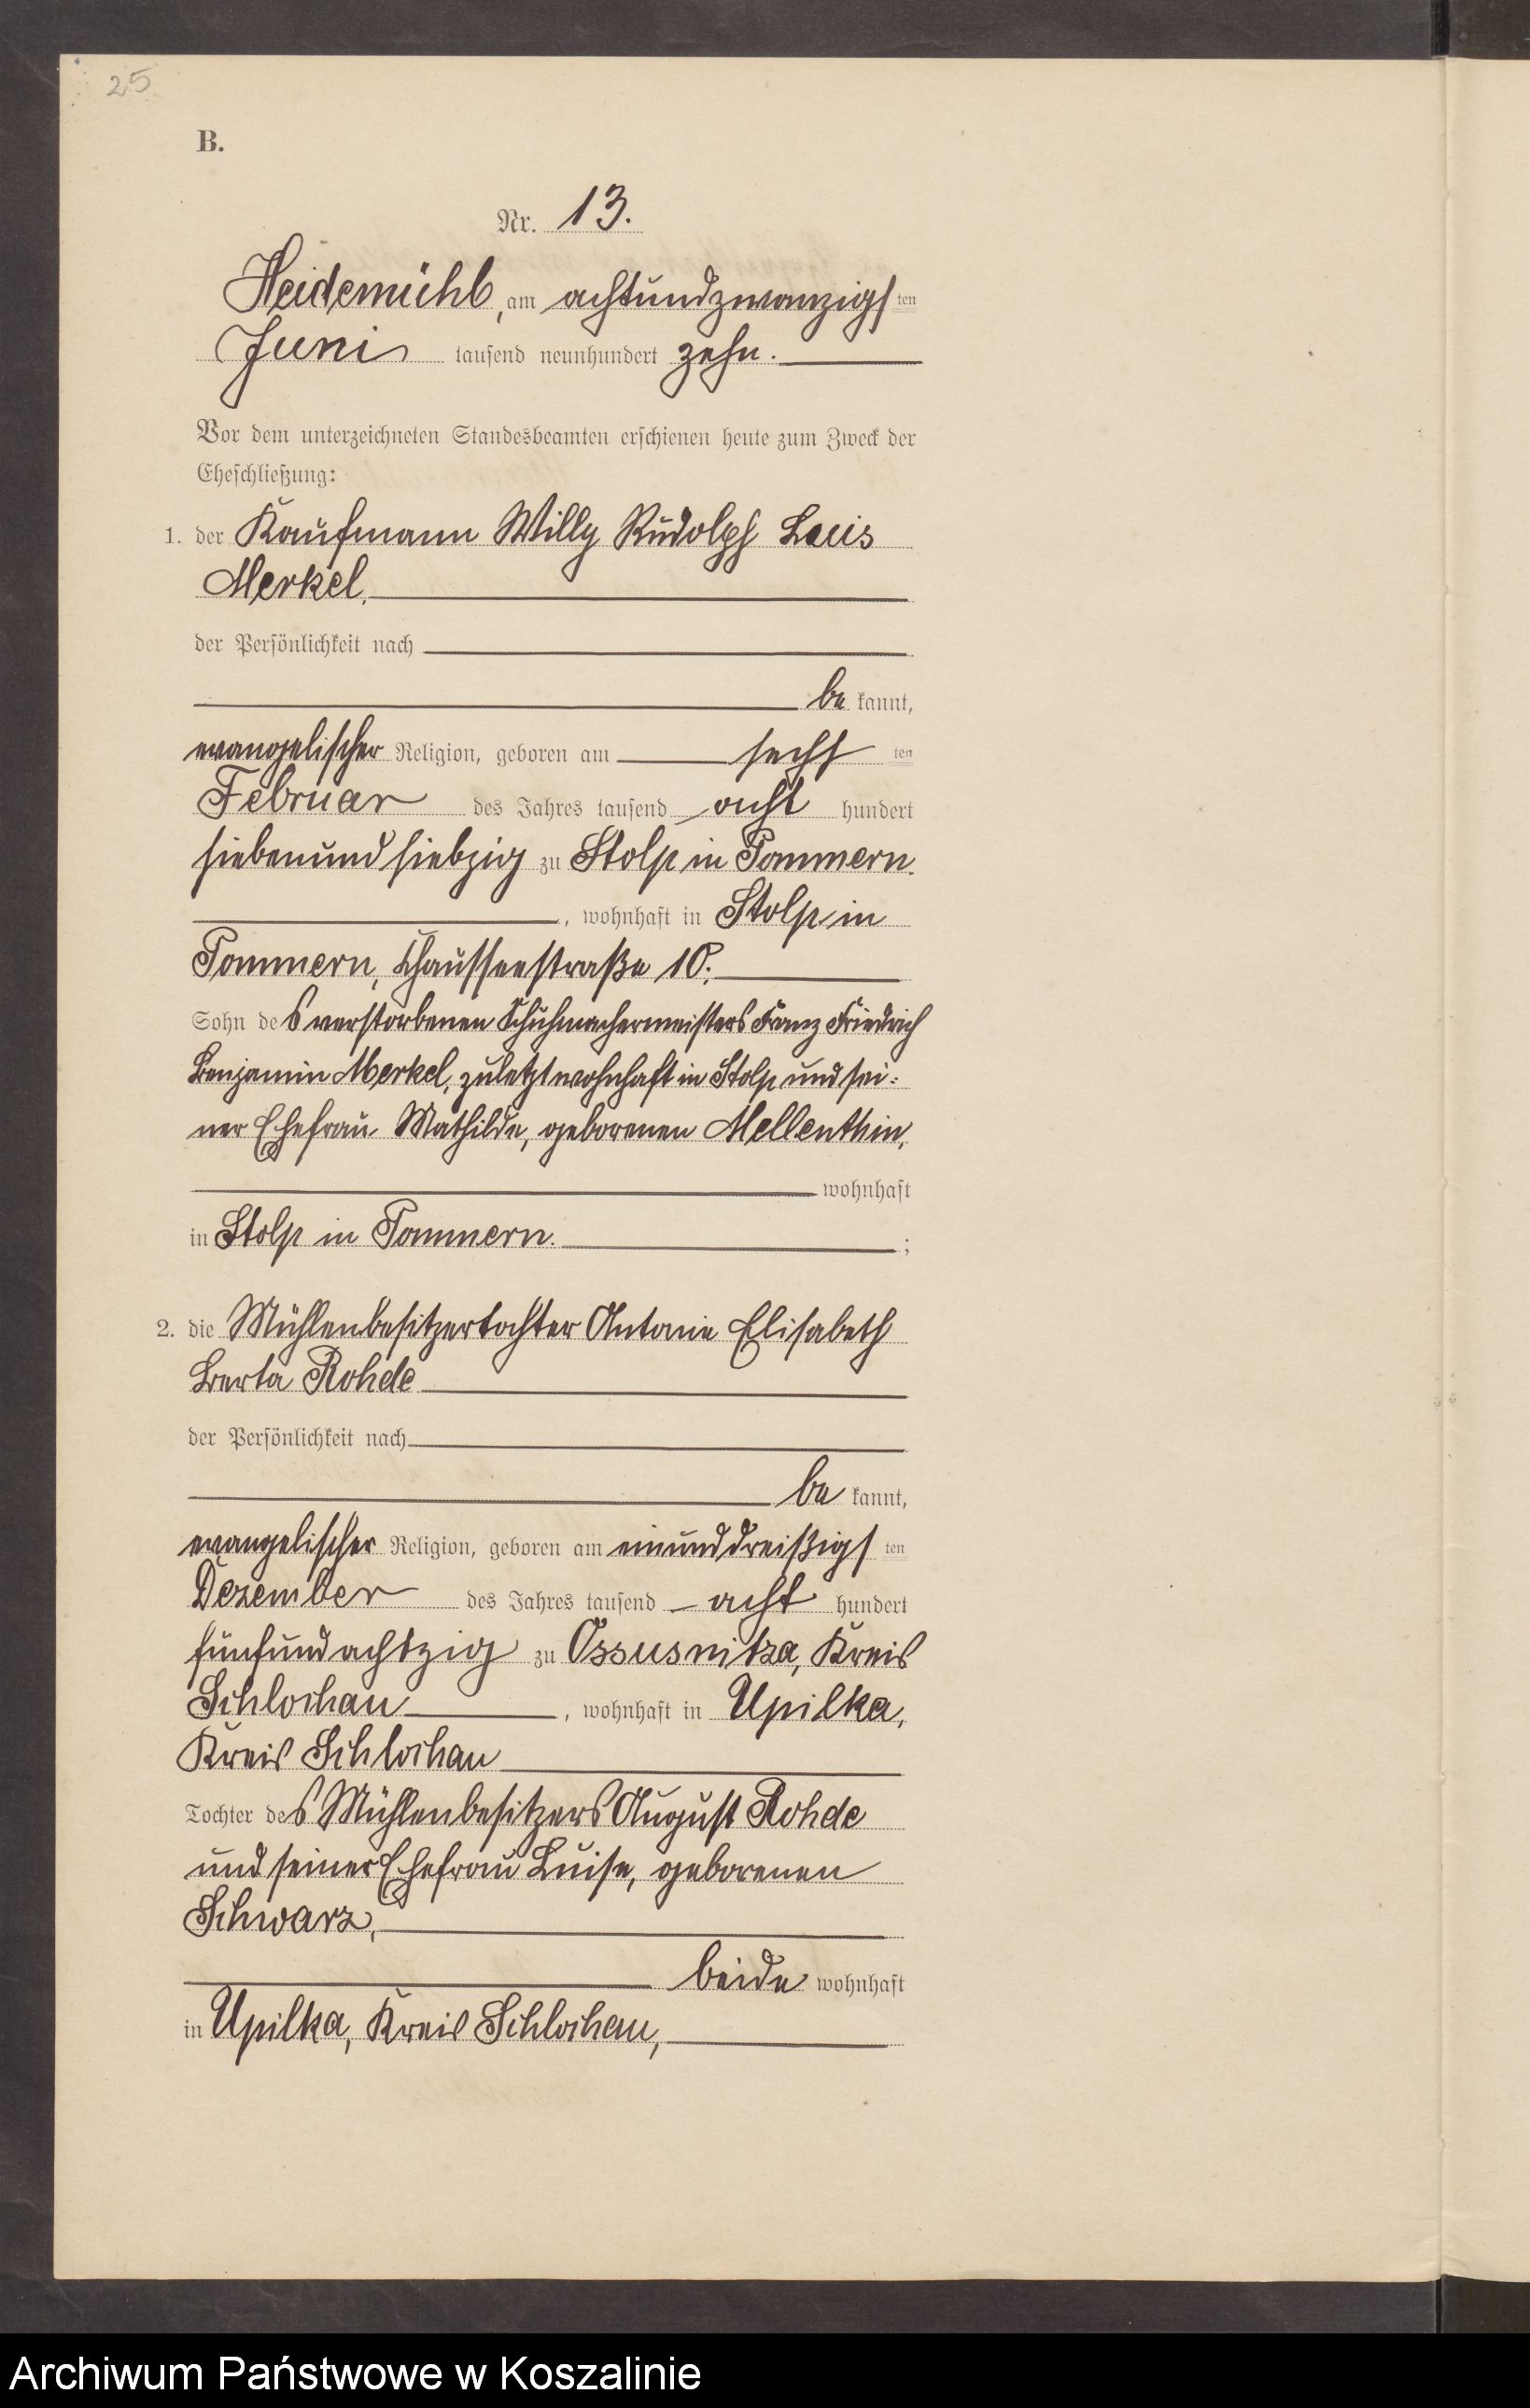 25
B.
Nr. 13.
Heidemühl, am achtundzwanzigsten
Juni tausend neunhundert zehn.
Vor dem unterzeichneten Standesbeamten erschienen heute zum Zweck der
Eheschließung:
1. der Kaufmann Willy Rudolph Louis
Merkel,
der Persönlichkeit nach
be kannt,
evangelischer Religion, geboren am sechsten
Februar des Jahres tausend acht hundert
siebenundsiebzig zu Stolp in Pommern.
, wohnhaft in Stolp in
Pommern, Chausseestraße 10.
Sohn des verstorbenen Schuhmachermeisters Franz Friedrich
Benjamin Merkel, zuletzt wohnhaft in Stolp und sei-
ner Ehefrau Mathilde, geborenen Mellenthin,
wohnhaft
in Stolp in Pommern. ;
2. die Mühlenbesitzertochter Antonie Elisabeth
Berta Rohde
der Persönlichkeit nach
be kannt,
evangelischer Religion, geboren am einunddreißigsten
Dezember des Jahres tausend acht hundert
fünfundachtzig zu Ossusnitza, Kreis
Schlochau , wohnhaft in Upilka,
Kreis Schlochau
Tochter des Mühlenbesitzers August Rohde
und seiner Ehefrau Luise, geborenen
Schwarz,
beide wohnhaft
in Upilka, Kreis Schlochau,
Archiwum Państwowe w Koszalinie